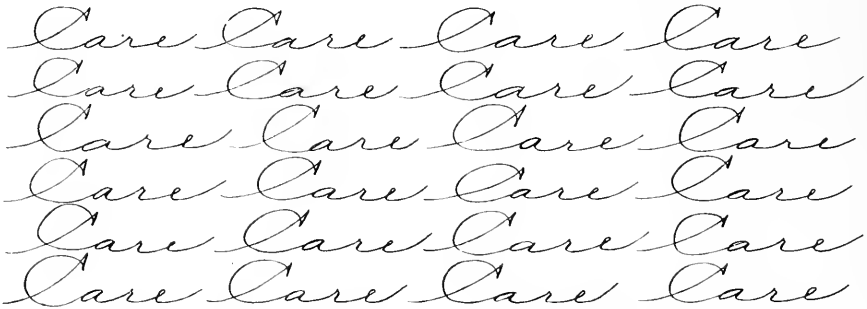 Care Care Care Care
Care Care Care Care
Care Care Care Care
Care Care Care Care
Care Care Care Care
Care Care Care Care